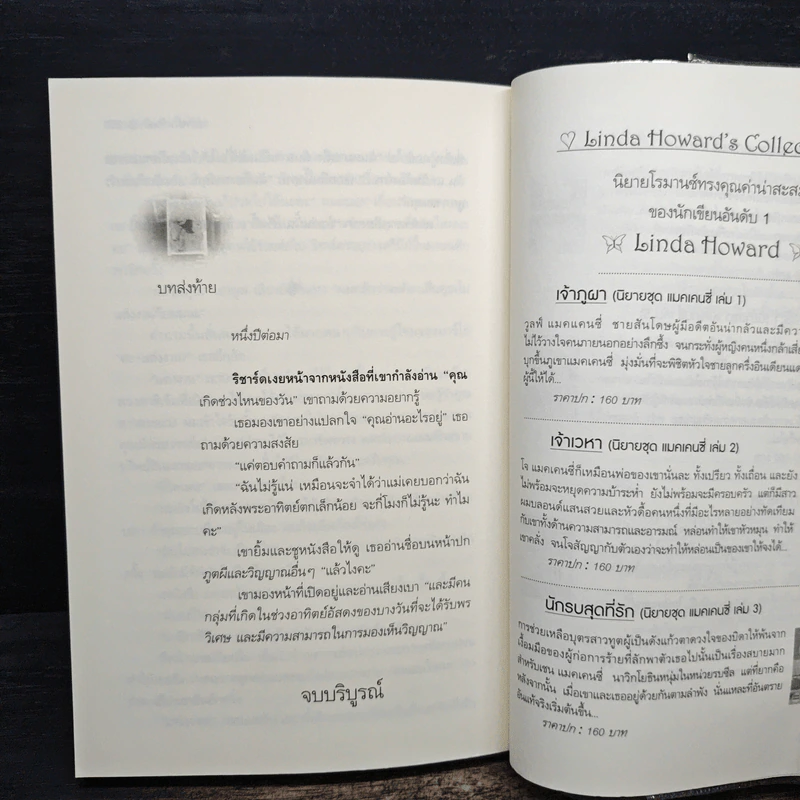 บทส่งท้าย
หนึ่งปีต่อมา
ริชาร์ดเงยหน้าจากหนังสือที่เขากำลังอ่าน “คุณ
เกิดช่วงไหนของวัน” เขาถามด้วยความอยากรู้
เธอมองเขาอย่างแปลกใจ “คุณอ่านอะไรอยู่” เธอ
ถามด้วยความสงสัย
“แค่ตอบคำถามก็แล้วกัน”
“ฉันไม่รู้แน่ เหมือนจะจำได้ว่าแม่เคยบอกว่าฉัน
เกิดหลังพระอาทิตย์ตกเล็กน้อย จะกี่โมงก็ไม่รู้นะ ทำไม
คะ”
เขายิ้มและชูหนังสือให้ดู เธออ่านชื่อบนหน้าปก
ภูตผีและวิญญาณอื่นๆ “แล้วไงคะ”
เขามองหน้าที่เปิดอยู่และอ่านเสียงเบา “และมีคน
กลุ่มที่เกิดในช่วงอาทิตย์อัสดงของบางวันที่จะได้รับพร
วิเศษ และมีความสามารถในการมองเห็นวิญญาณ”
จบบริบูรณ์
Linda Howard's Collec
นิยายโรมานซ์ทรงคุณค่าน่าสะส
ของนักเขียนอันดับ 1
Linda Howard
เจ้าภูผา (นิยายชุด แมคเคนซี่ เล่ม 1)
วูลฟ์ แมคแคนซี่ ชายสันโดษผู้มีอดีตอันน่ากลัวและมีควา
ไม่ไว้วางใจคนภายนอกอย่างลึกซึ้ง จนกระทั่งผู้หญิงคนหนึ่งกล้าเสี่
บุกขึ้นภูเขาแมคแคนซี่ มุ่งมั่นที่จะพิชิตหัวใจชายลูกครึ่งอินเดียนแด
ผู้นี้ให้ได้...
ราคาปก : 160 บาท
เจ้าเวหา (นิยายชุด แมคเคนซี่ เล่ม 2)
โจ แมคเคนซี่ก็เหมือนพ่อของเขานั่นละ ทั้งเปรียว ทั้งเถื่อน และยัง
ไม่พร้อมจะหยุดความบ้าระห่ำ ยังไม่พร้อมจะมีครอบครัว แต่ก็มีสาว
ผมบลอนด์แสนสวยและหัวดื้อคนหนึ่งที่มีอะไรหลายอย่างทัดเทียม
กับเขาทั้งด้านความสามารถและอารมณ์ หล่อนทำให้เขาหัวหมุน ทำให้
เขาคลั่ง จนโจสัญญากับตัวเองว่าจะทำให้หล่อนเป็นของเขาให้จงได้...
ราคาปก : 160 บาท
นักรบสุดที่รัก (นิยายชุด แมคเคนซี่ เล่ม 3)
การช่วยเหลือบุตรสาวทูตผู้เป็นดั่งแก้วตาดวงใจของบิดาให้พ้นจาก
เงื้อมมือของผู้ก่อการร้ายที่ลักพาตัวเธอไปนั้นเป็นเรื่องสบายมาก
สำหรับเซน แมคเคนซี่ นาวิกโยธินหนุ่มในหน่วยรบซีล แต่ที่ยากคือ
หลังจากนั้น เมื่อเขาและเธออยู่ด้วยกันตามลำพัง นั่นแหละที่อันตราย
อันแท้จริงเริ่มต้นขึ้น...
ราคาปก : 160 บาท